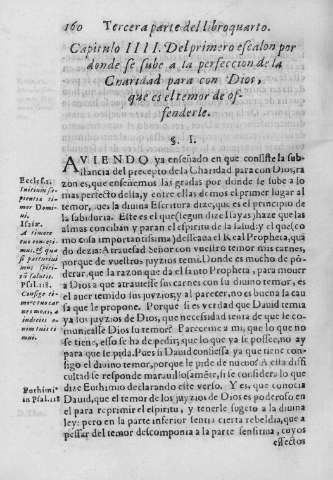 160 Tercera parte del libro quarto.
Capitulo IIII. Del primero escalon por
donde se sube a la perfeccion de la
Charidad para con Dios,
que es el temor de of-
fenderle.
§. I.
AVIENDO ya enseñado en que consiste la sub-
stancia del precepto de la Charidad para con Dios, ra
zon es, que enseñemos las gradas por donde se sube a lo
mas perfecto della, y entre ellas damos el primer lugar al
temor, que la diuina Escritura dize, que es el principio de
la sabiduria. Este es el que (segun dize Isayas) haze que las
almas conciban y paran el espiritu de la salud. y el que (co
mo cosa importantissima) desseaua el Real Propheta, quã
do dezia: Atrauessad Señor con vuestro temor mis carnes,
porque de vuestros juyzios temi. Donde es mucho de põ-
derar, que la razon que da el santo Propheta, para mouer
a Dios a que atrauiesse sus carnes con su diuino temor, es
el auer temido sus juyzios; y al parecer, no es buena la cau
sa que le propone. Porque si es verdad que Dauid temia
ya los juyzios de Dios, que necessidad tenia de que le co-
municasse Dios su temor? Pareceme a mi, que lo que no
se tiene, esso se ha de pedir; que lo que ya se possee, no ay
para que se pida. Pues si Dauid confiessa ya que tiene con-
sigo el diuino temor, porque le pide de nueuo? A esta diffi
cultad se responde marauillosamẽte, si se considera lo que
dize Euthimio declarando este verso. Y es, que conocia
Dauid, que el temor de los juyzios de Dios es poderoso en
el para reprimir el espiritu, y tenerle sugeto a la diuina
ley: pero en la parte inferior sentia cierta rebeldia, que a
pessar del temor descomponia a la parte sensitiua, cuyos
effectos
Ecclesi.
Initium sa-
pientiæ ti-
mor Domi-
ni.
Isaiæ.
A timore
tuo concepi-
mus, & qua-
si parturiui
mus spiri-
tũ salutis.
Psal. 118.
Confige ti-
more tuo car
nes meas, à
iudicijs e-
nim tuis ti
mui.
Euthimi^9
in Psal. 118